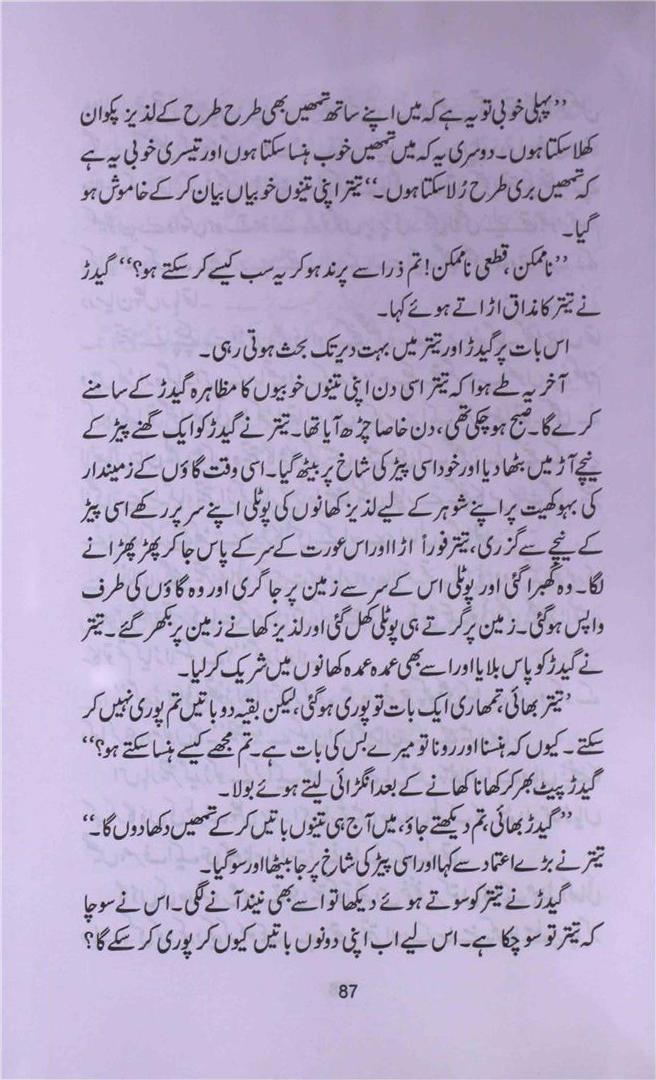 ’’پہلی خوبی تو یہ ہے کہ میں اپنے ساتھ تمھیں بھی طرح طرح کے لذیز پکوان
کھلا سکتا ہوں۔ دوسری یہ کہ میں تمھیں خوب ہنسا سکتا ہوں اور تیسری خوبی یہ ہے
کہ تمھیں بری طرح رُلا سکتا ہوں۔‘‘ تیتر اپنی تینوں خوبیاں بیان کر کے خاموش ہو
گیا۔
’’ناممکن، قطعی ناممکن! تم ذرا سے پرند ہو کر یہ سب کیسے کر سکتے ہو؟‘‘ گیدڑ
نے تیتر کا مذاق اڑاتے ہوئے کہا۔
اس بات پر گیدڑ اور تیتر میں بہت دیر تک بحث ہوتی رہی۔
آخر یہ طے ہوا کہ تیتر اسی دن اپنی تینوں خوبیوں کا مظاہرہ گیدڑ کے سامنے
کرے گا۔ صبح ہو چکی تھی، دن خاصا چڑھ آیا تھا۔ تیتر نے گیدڑ کو ایک گھنے پیڑ کے
نیچے آڑ میں بٹھا دیا اور خود اسی پیڑ کی شاخ پر بیٹھ گیا۔ اسی وقت گاؤں کے زمیندار
کی بہو کھیت پر اپنے شوہر کے لیے لذیز کھانوں کی پوٹلی اپنے سر پر رکھے اسی پیڑ
کے نیچے سے گزری، تیتر فوراً اڑا اور اس عورت کے سر کے پاس جا کر پھڑ پھڑانے
لگا۔ وہ گھبرا گئی اور پوٹلی اس کے سر سے زمین پر جا گری اور وہ گاؤں کی طرف
واپس ہو گئی۔ زمین پر گرتے ہی پوٹلی کھل گئی اور لذیز کھانے زمین پر بکھر گئے۔ تیتر
نے گیدڑ کو پاس بلایا اور اسے بھی عمدہ عمدہ کھانوں میں شریک کر لیا۔
’تیتر بھائی، تمھاری ایک بات تو پوری ہو گئی، لیکن بقیہ دو باتیں تم پوری نہیں کر
سکتے۔ کیوں کہ ہنسنا اور رونا تو میرے بس کی بات ہے۔ تم مجھے کیسے ہنسا سکتے ہو؟‘‘
گیدڑ پیٹ بھر کر کھانا کھانے کے بعد انگڑائی لیتے ہوئے بولا۔
’’گیدڑ بھائی، تم دیکھتے جاؤ، میں آج ہی تینوں باتیں کر کے تمھیں دکھا دوں گا۔‘‘
تیتر نے بڑے اعتماد سے کہا اور اسی پیڑ کی شاخ پر جا بیٹھا اور سو گیا۔
گیدڑ نے تیتر کو سوتے ہوئے دیکھا تو اسے بھی نیند آنے لگی۔ اس نے سوچا
کہ تیتر تو سو چکا ہے۔ اس لیے اب اپنی دونوں باتیں کیوں کر پوری کر سکے گا؟
87